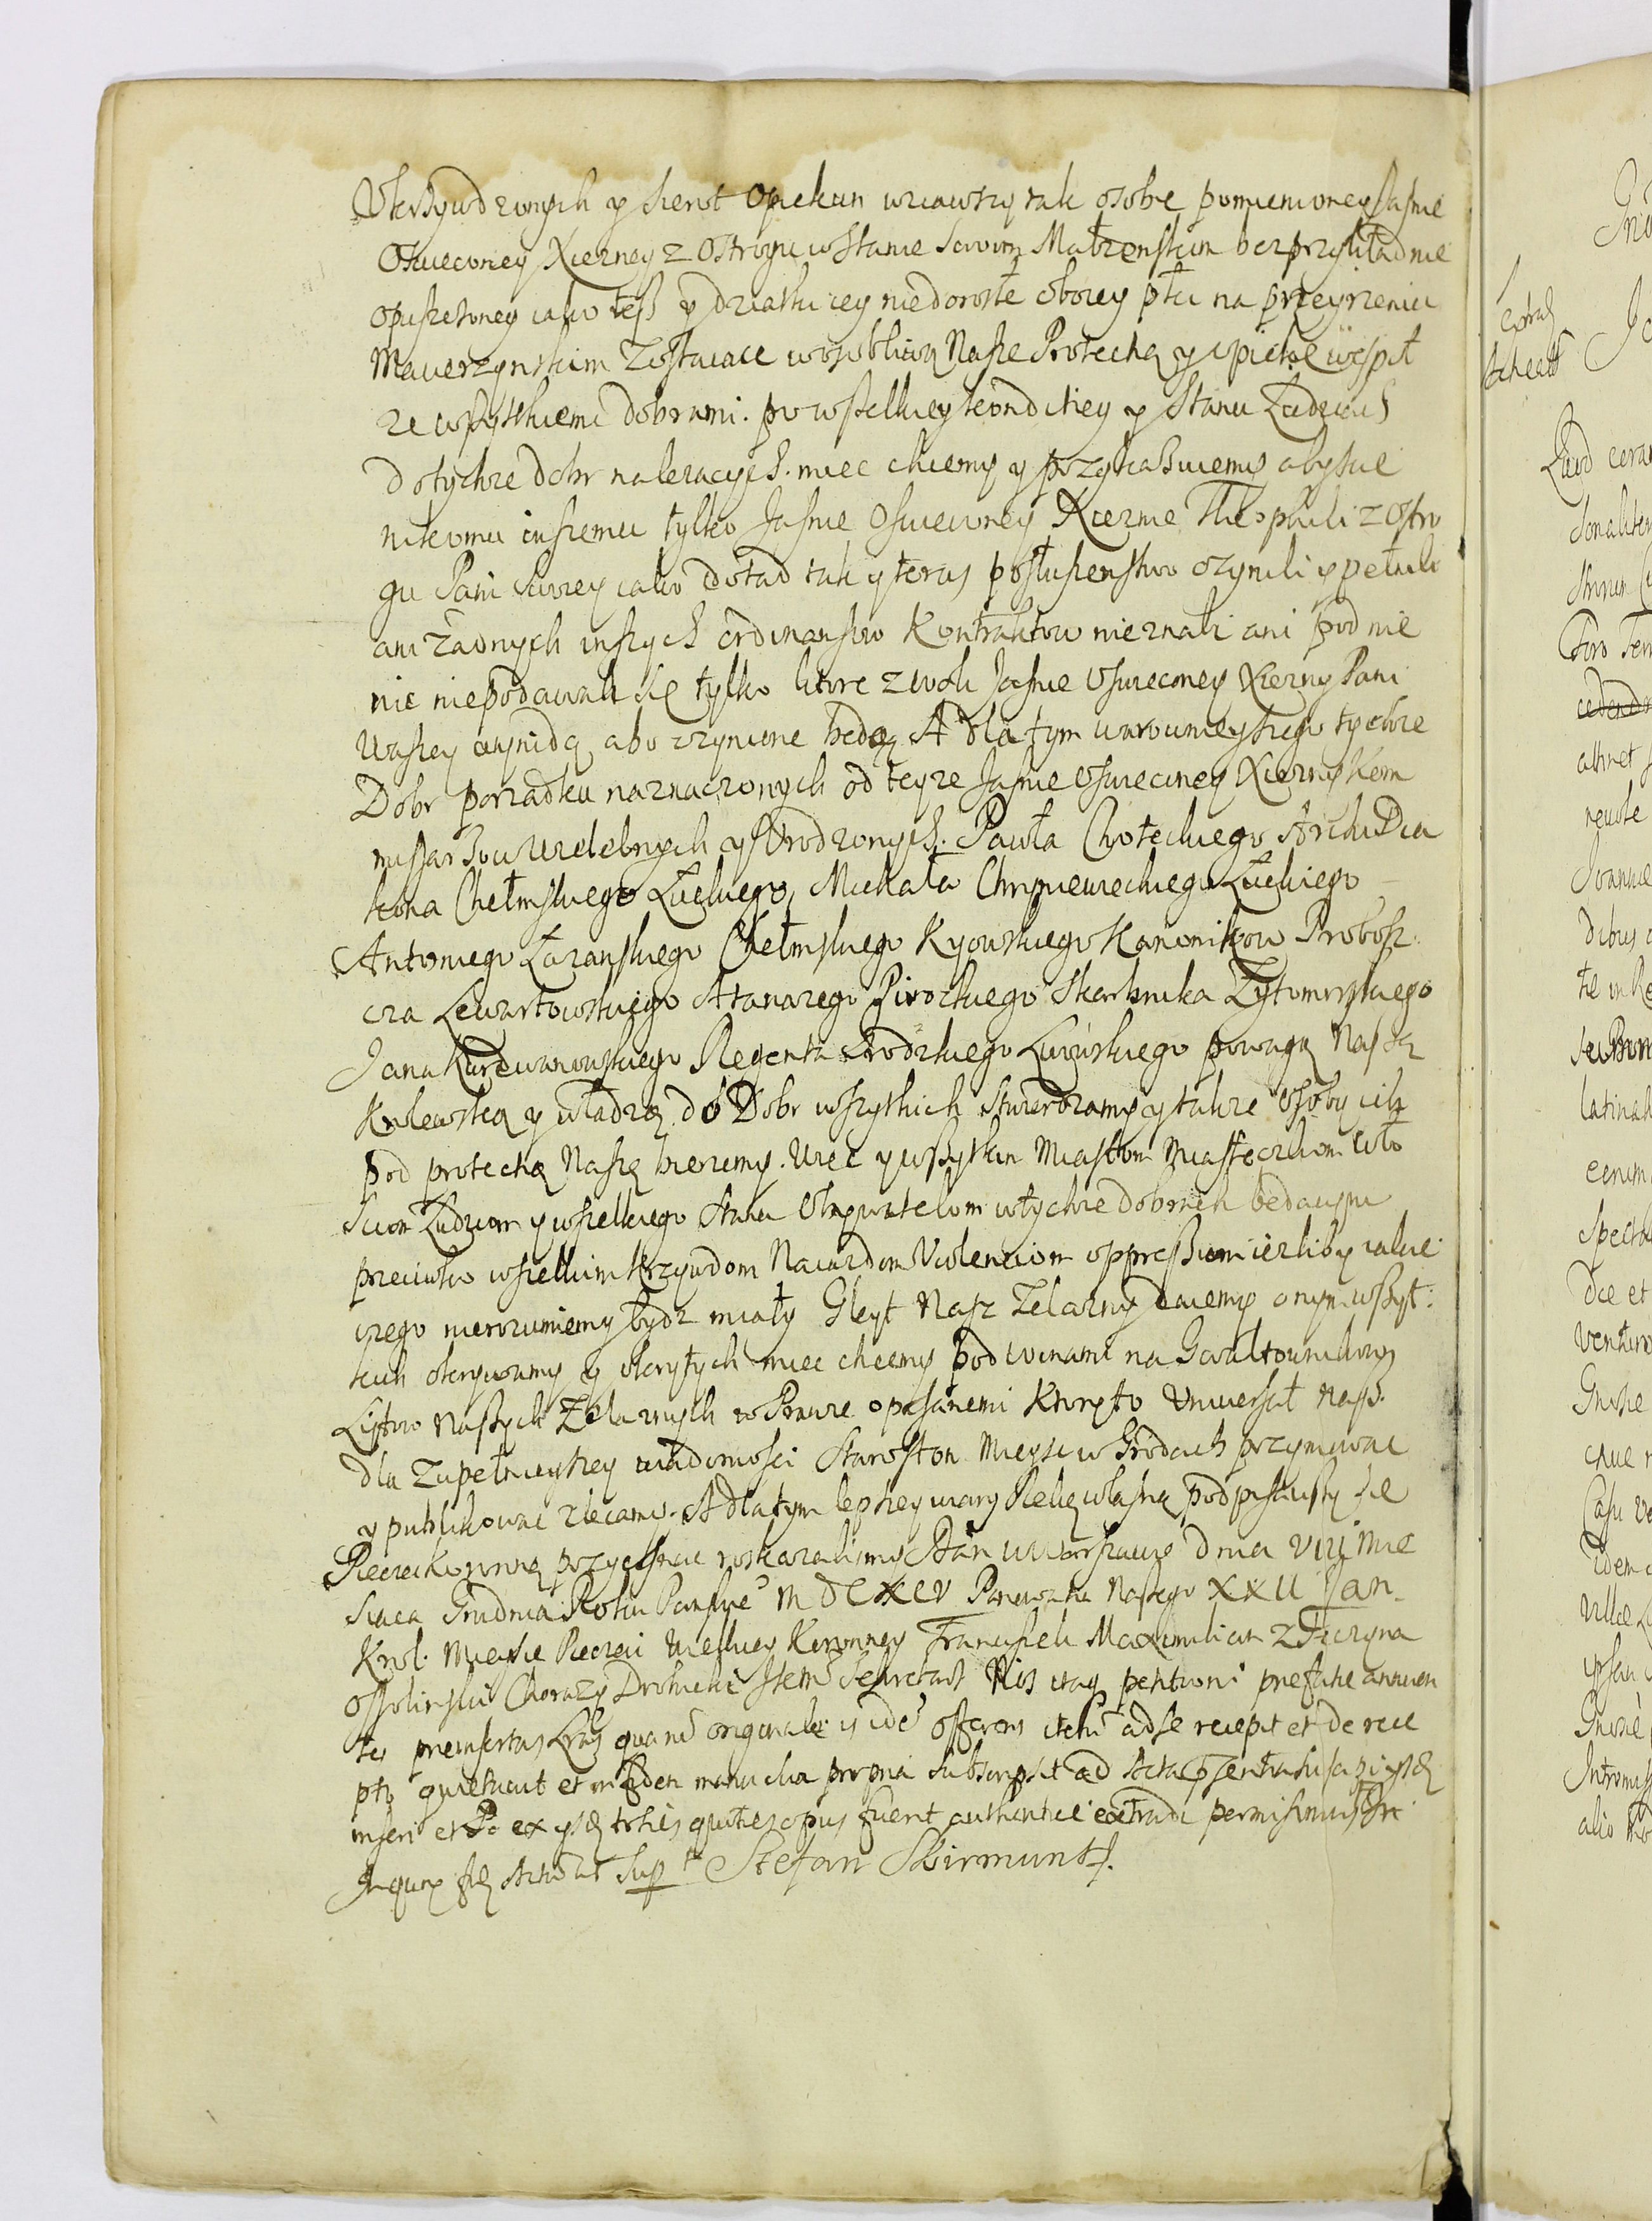 Ukrzywdzonych y sierot Opiekun wziawszy tak osobę pomienioney Jasnie
Oswieconey Xiezney z Ostroga w Stanie Swoim Małzenskim bezprzykładnie
opuszczoney iako tesz y dziatki iey niedorosłe oboiey płci na przeyrzeniu
Macierzynskim Zostaiace w osobliwą Nasze Protectią y opiekę wespoł
ze wszytkiemi dobrami. po wszelkiey konditiey y Stanu Ludziach
do tychze dobr nalezacych. miec chcemy y przykazuiemy abyscie
nikomu inszemu tylko Jasnie Oswieconey Xieznie Theophili z Ostro
gu Pani Swoiey iako dotad tak y teras posłuszenstwo czynili y pełnili
ani zadnych inszych ordinansow Kontraktow nieznali ani pod nie
nie niepodawali się tylko ktore z woli Jasnie Oswieconey Xiezny Pani
Waszey wynidą abo uczynione będą A dla tym warownieyszego tychze
Dobr porzadku naznaczonych od teyze Jasnie Oswieconey Xiezny Kom
missarzow Wielebnych y Urodzonych. Pawła Choteckiego ArchiDia
kona Chełmskiego Łuckiego, Michała Chrynieweckiego Łuckiego
Antoniego Łazanskiego Chełmskiego Kyowskiego Kanonikow Probosz
cza Lewartowskiego Atanazego Pirockiego Skarbnika Zytomirskiego
Jana Kurdwanowskiego Regenta Grodzkiego Lwowskiego powagą Naszą
Krolewską y władzą do Dobr wszytkich Stwierdzamy y takze Osoby ich
pod protectią Naszę bierzemy. Wiec y wszytkim Miastom Miasteczkom Wło
sciom Ludziom y wszelkiego Stanu Obywatelom w tychze dobrach będącym
przeciwko wszelkim Krzywdom Naiazdom Violentiom oppressiom iezliby iakie
czego nierozumiemy bydz miały Gleyt Nasz Zelazny daiemy onym wszyt:
kich okrywamy y okrytych miec chcemy pod winami na Gwałtownikow
Listow Naszych Zelaznych w Prawie opisanemi Ktory to Universał Nasz.
dla Zupełnieyszey wiadomosci Starostom Mieysc w Grodach przyimowac
y publikowac zlecamy. A dla tym lepszey wiary Ręką własną podpisawszy się
Pieczec Koronną przycisnac roskazalismy Dan w Warszawie Dnia VIII Mie
siaca Grudnia Roku Panskie° MDCXCV Panowania Naszego XXII Jan
Krol. Mieysce Pieczęci Wielkiey Koronney Franciszek Maximilian z Tęczyna
Ossolinski Chorązy Drohicki Item Sekretarz Nos itaq petitioni prefatae annuen
tes preinsertas Lras quarum originale is idem offerens iterum ad se recepit et de rece
pto quietavit et in fidem manu sua propria subscripsit ad Acta
inseri et ex ysdem toties quoties opus fuerit authentice extradi permisimus
In quorum fidem Actum ut Supra Stefan Skirmunt.